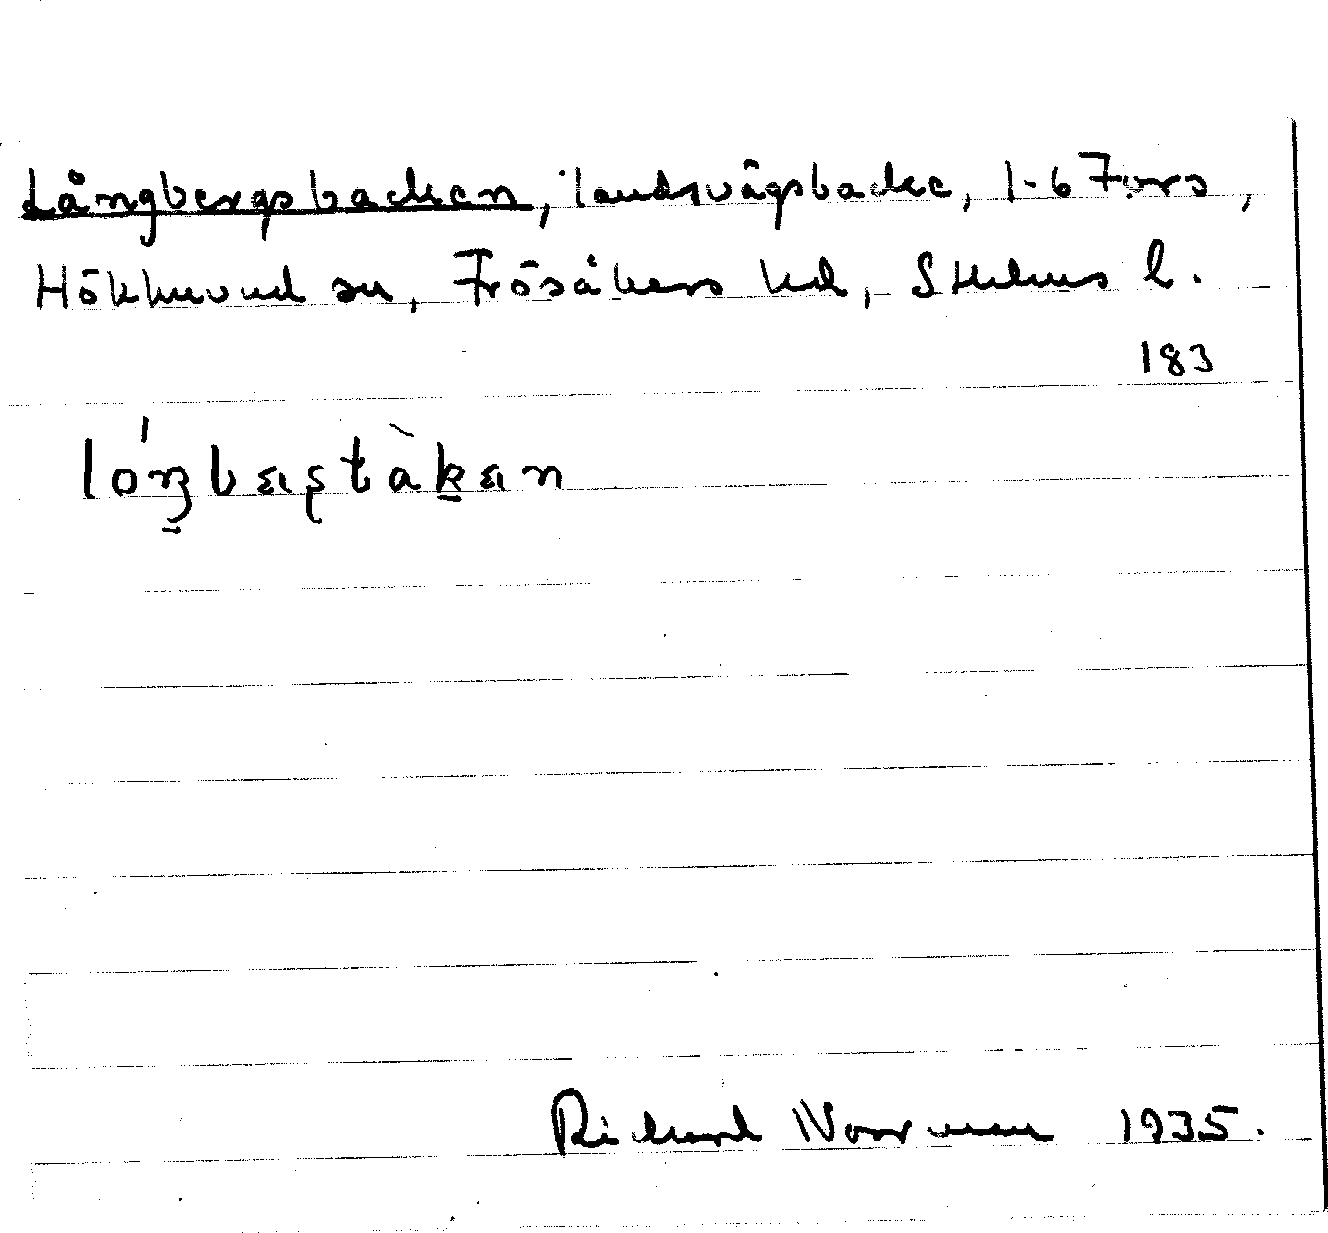 Långbergsbacken, landsvägsbacke, 1-6 Fors,
Hökhuvud sn, Frösåkers hd, Sthlms l.
183
lóŋbæʂtàkæn
Richard Norrman 1935.